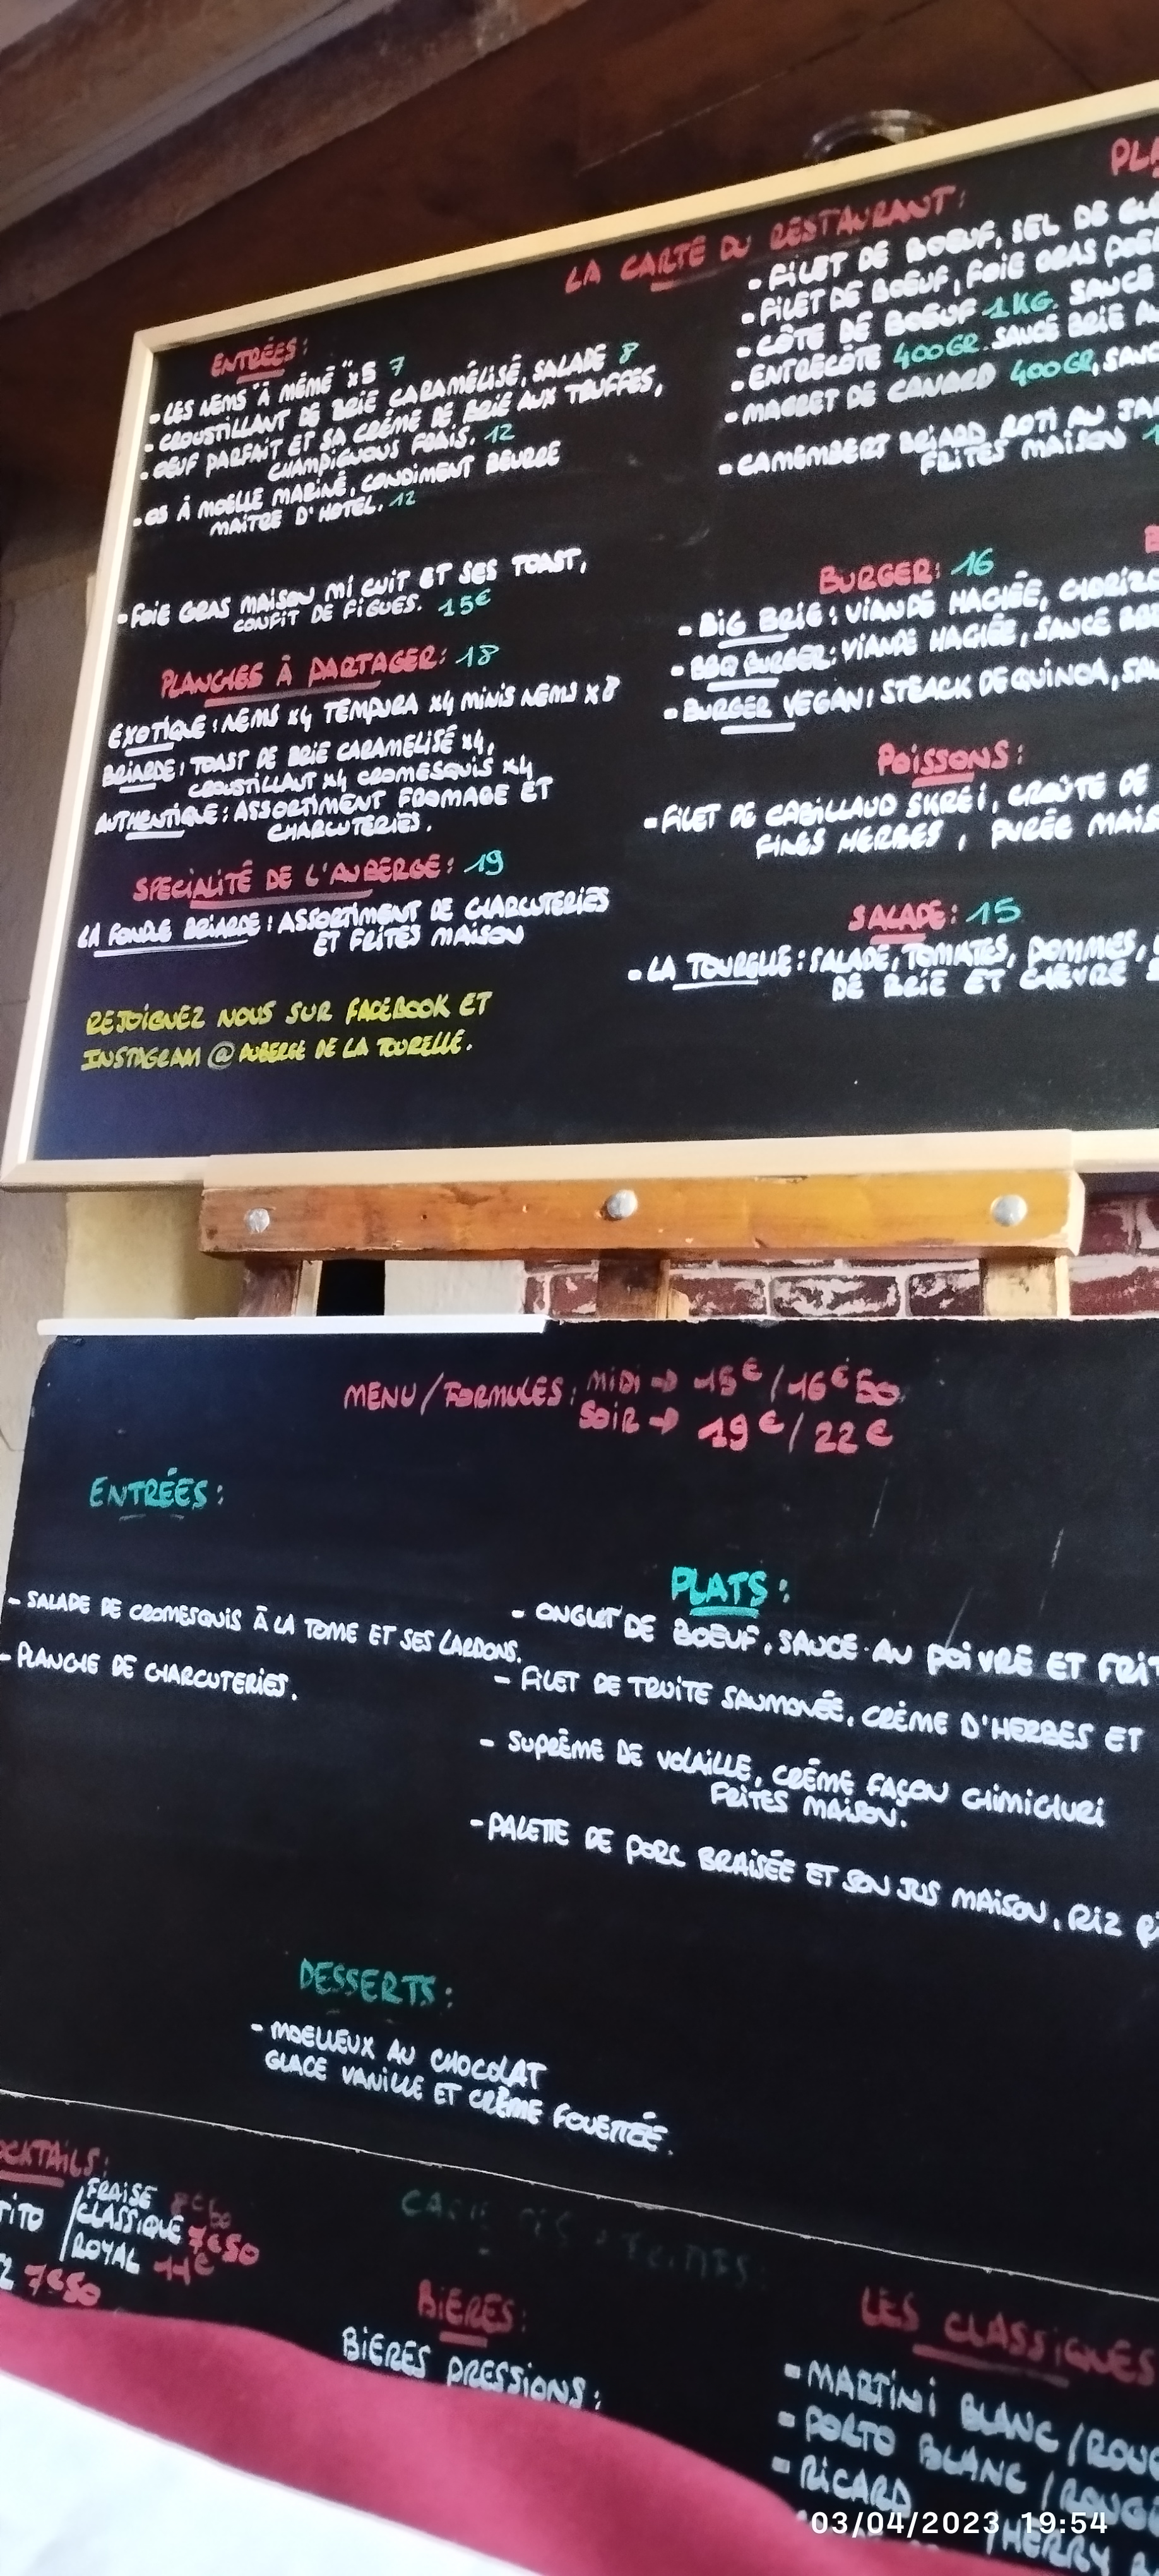 LA CARTE DU RESTAURANT:
ENTRÉES:
- LES NEMS "À MÉMÉ" x5 7
- CROUSTILLANT DE BRIE CARAMÉLISÉ, SALADE 8
- OEUF PARFAIT ET SA CRÈME DE BRIE AUX TRUFFES,
CHAMPIGNONS FRAIS. 12
- OS À MOELLE MARINÉ, CONDIMENT BEURRE
MAITRE D'HOTEL. 12
- FOIE GRAS MAISON MI CUIT ET SES TOAST,
CONFIT DE FIGUES. 15€
PLANCHES À PARTAGER: 18
EXOTIQUE: NEMS x4 TEMPURA x4 MINIS NEMS x8
BRIARDE: TOAST DE BRIE CARAMELISÉ x4,
CROUSTILLANT x4 CROMESQUIS x4
AUTHENTIQUE: ASSORTIMENT FROMAGE ET
CHARCUTERIES.
SPECIALITÉ DE L'AUBERGE: 19
LA FONDUE BRIARDE: ASSORTIMENT DE CHARCUTERIES
ET FRITES MAISON
REJOIGNEZ NOUS SUR FACEBOOK ET
INSTAGRAM @ AUBERGE DE LA TOURELLE.
PLA
- FILET DE BOEUF, SEL DE GUÉ
- FILET DE BOEUF, FOIE GRAS POE
- CÔTE DE BOEUF 1KG. SAUCE
- ENTRECÔTE 400GR. SAUCE BRIE AU
- MAGRET DE CANARD 400GR, SAUC
- CAMEMBERT BRIARD ROTI AU JA
FRITES MAISON 1
BURGER: 16
- BIG BRIE: VIANDE HACHÉE, CHORIZO
- BBQ BURGER: VIANDE HACHÉE, SAUCE BB
- BURGER VEGAN: STEACK DE QUINOA, SA
POISSONS:
- FILET DE CABILLAUD SKREI, CROÛTE DE
FINES HERBES, PURÉE MAIS
SALADE: 15
- LA TOURELLE: SALADE, TOMATES, POMMES,
DE BRIE ET CHÈVRE
MENU/FORMULES: MIDI → 15€/16€50
SOIR → 19€/22€
ENTRÉES:
- SALADE DE CROMESQUIS À LA TOME ET SES LARDONS.
- PLANCHE DE CHARCUTERIES.
PLATS:
- ONGLET DE BOEUF, SAUCE AU POIVRE ET FRIT
- FILET DE TRUITE SAUMONÉE, CRÈME D'HERBES ET
- SUPRÊME DE VOLAILLE, CRÈME FAÇON CHIMICHURI
FRITES MAISON.
- PALETTE DE PORC BRAISÉE ET SON JUS MAISON, RIZ
DESSERTS:
- MOELLEUX AU CHOCOLAT
GLACE VANILLE ET CRÈME FOUETTÉE.
OCKTAILS:
ITO
FRAISE
CLASSIQUE 7€50
ROYAL 11€
7€50
BIERES:
BIERES PRESSIONS:
LES CLASSIQUES
- MARTINI BLANC/ROUG
- PORTO BLANC/ROUGE
- RICARD
03/04/2023 19:54